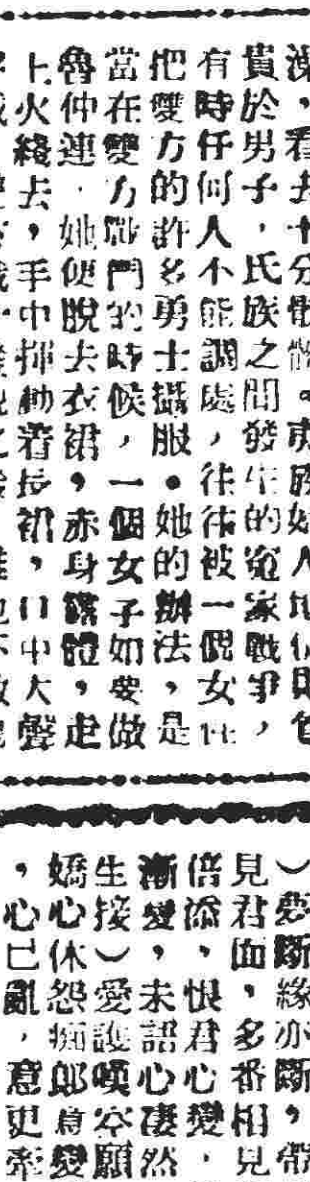 澡，看去十分骯髒。夷族婦人地位
貴於男子，氏族之間發生的冤家戰爭，
有時任何人不能調處，往往被一個女性
把雙方的許多勇士攝服。她的辦法，是
當在雙方戰鬥的時候，一個女子如要做
魯仲連，她便脫去衣裙，赤身露體，走
上火綫去，手中揮動着長裙，口中大聲
）夢斷緣亦斷，帶
見君面，多番相見
倍添，恨君心變，
漸變，未語心凄然
生接）愛護嘆空願
嬌心休怨痴郎意變
，心已亂，意更牽